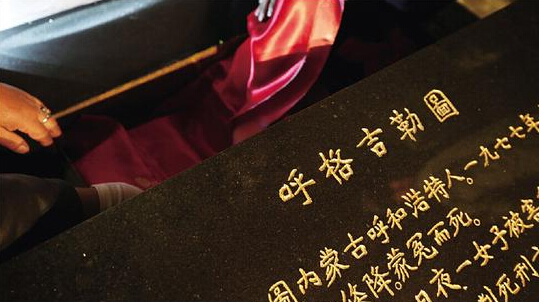 呼格吉勒圖
圖内蒙古呼和浩特人。一九七七年
降。蒙冤而死。
夜，一女子被害
判死刑